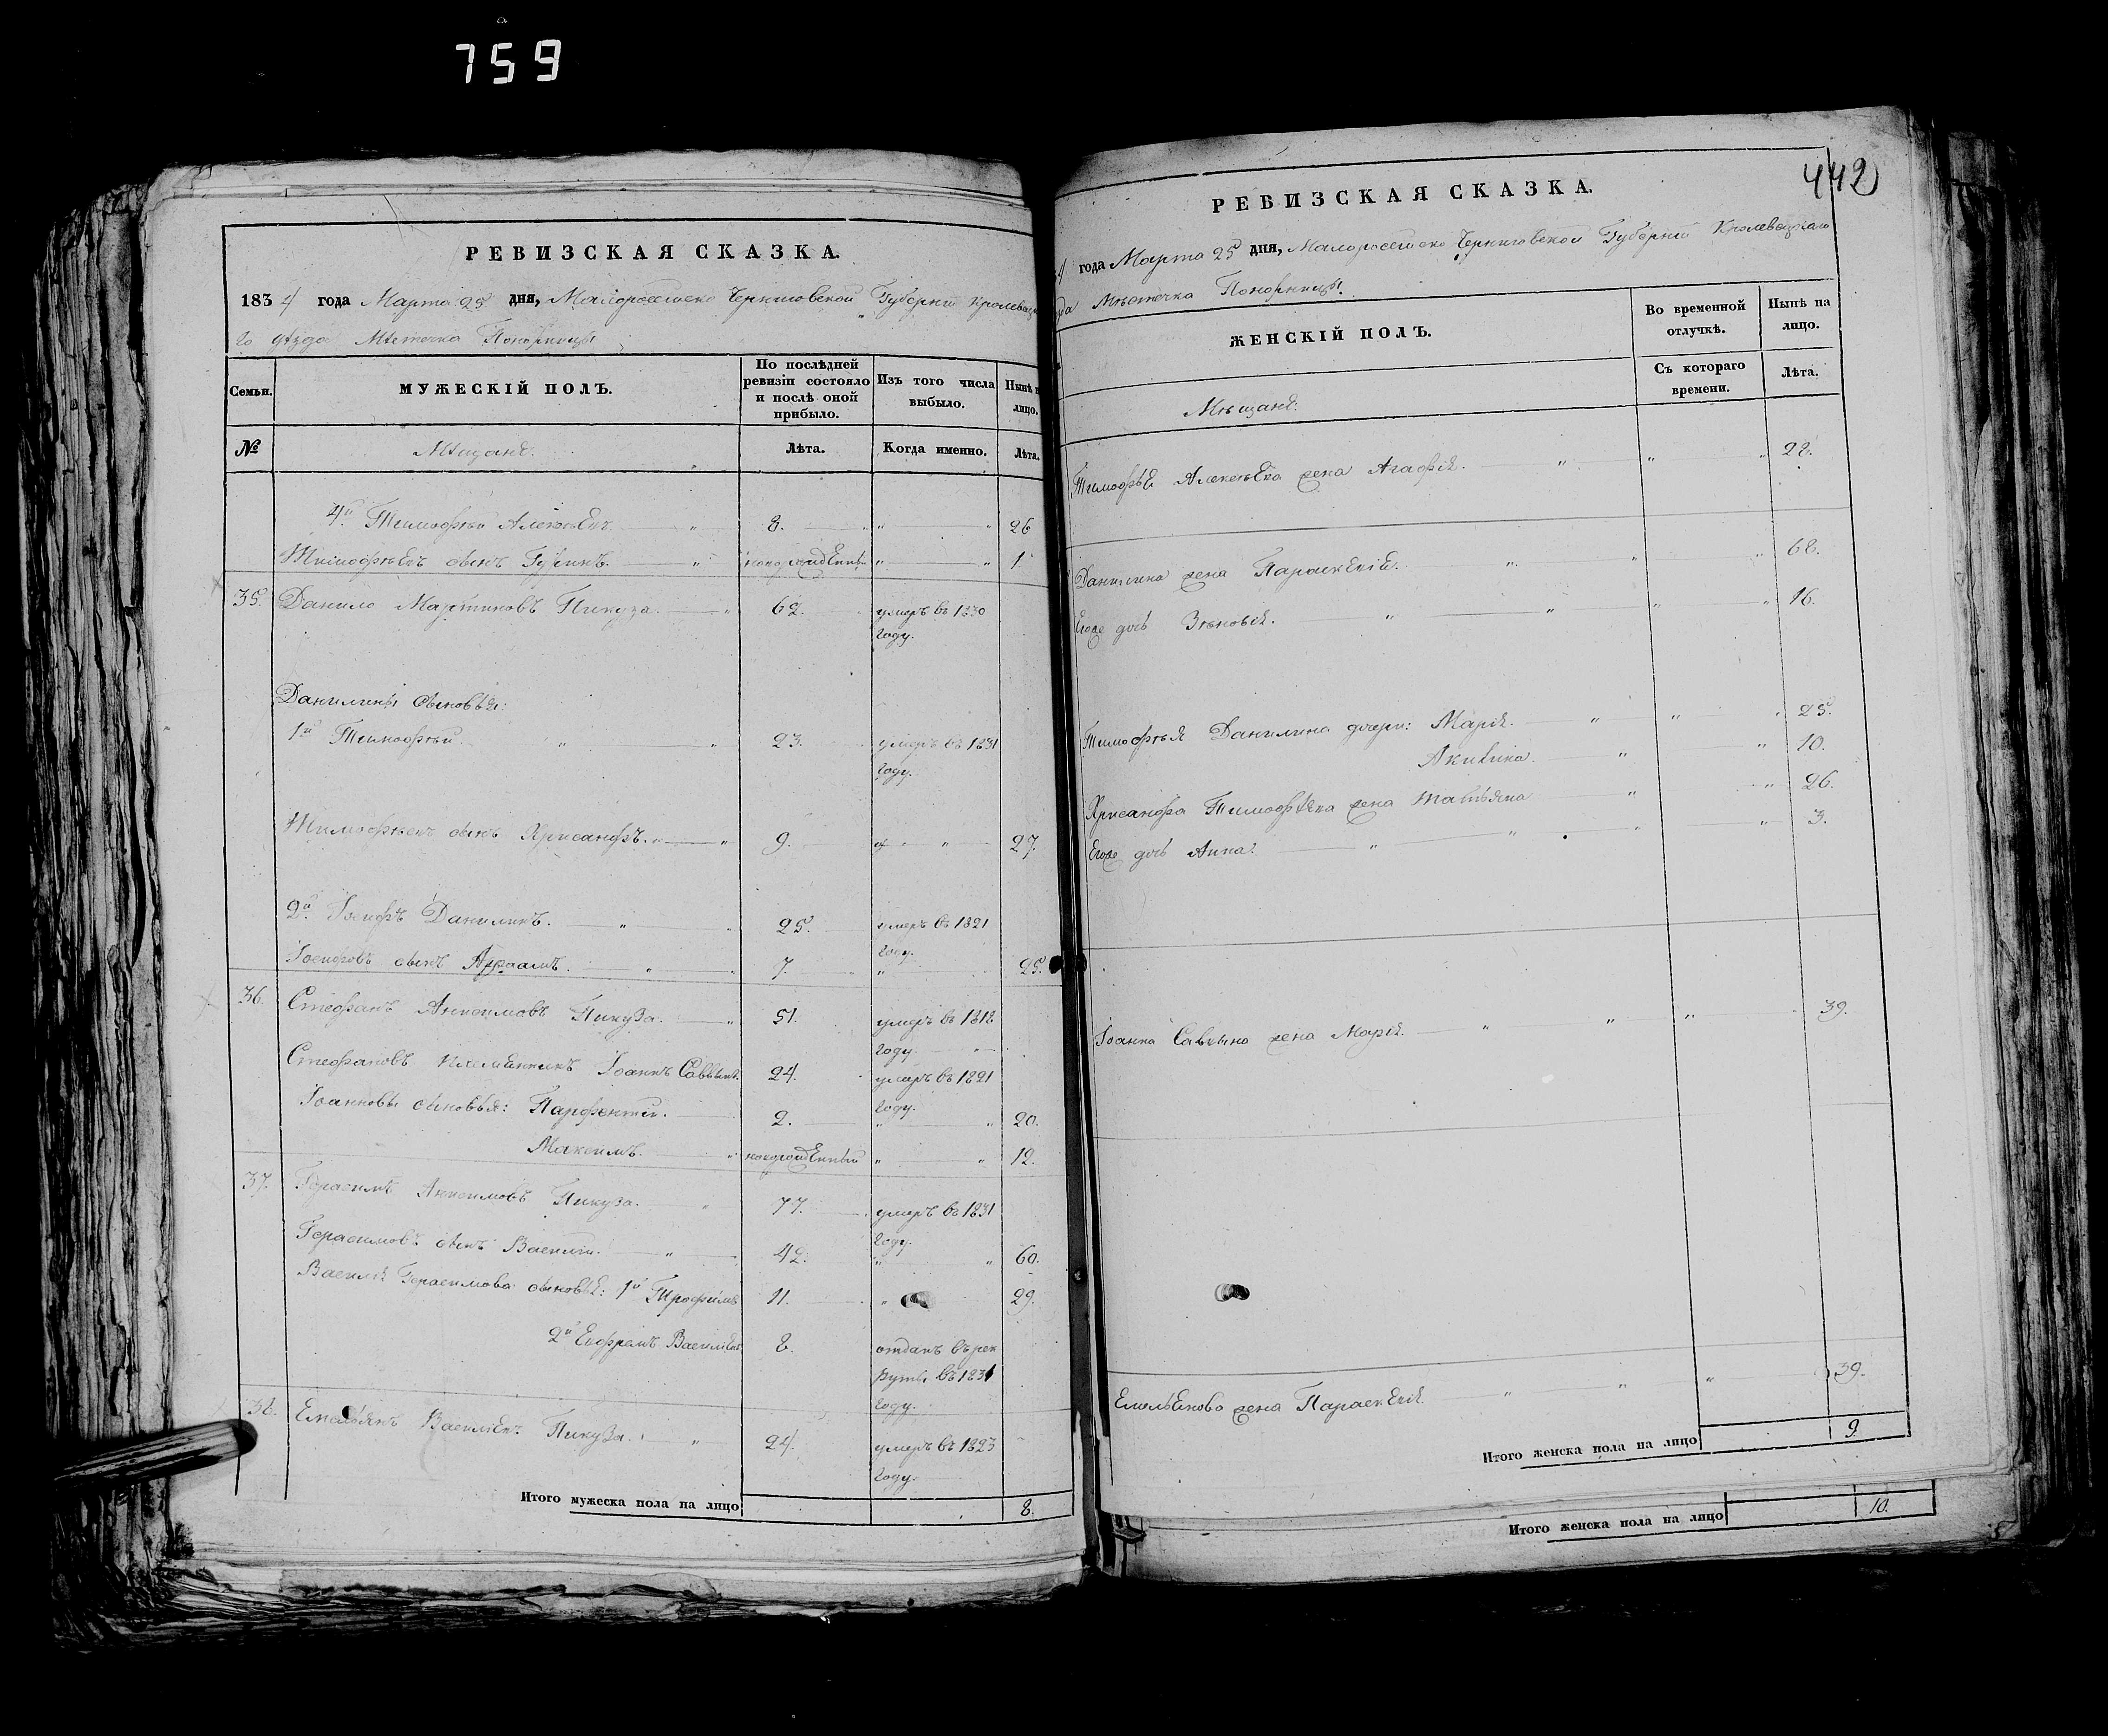 759
РЕВИЗСКАЯ СКАЗКА.
1834 года Марта 25 дня, Малороссійско Черниговской Губерніи Кролевецка
го уѣзда Мѣстечка Понорницы
Семьи.
МУЖЕСКІЙ ПОЛЪ.
По послѣдней ревизіи состояло и послѣ оной прибыло.
Изъ того числа выбыло.
Нынѣ на лицо.
№
Мѣщанѣ.
Лѣта.
Когда именно.
Лѣта.
4й Тимофѣй Алексѣевъ 8. 26
Тимофѣевъ сынъ Гуринъ. новорожденный 1
35. Данило Мартиновъ Пикуза. 62. умеръ въ 1830
году.
Данилины сыновья:
1й Тимофѣй. 23. умеръ въ 1831
году.
Тимофѣевъ сынъ Хрисанфъ. 9. 27.
2й Іосифъ Данилинъ. 25. умеръ въ 1821
году.
Іосифовъ сынъ Авраамъ. 7. 25.
36. Стефанъ Анисимовъ Пикуза. 51. умеръ въ 1818
году.
Стефановъ племянникъ Іоаннъ Саввинъ. 24. умеръ въ 1821
году.
Іоанновы сыновья: Парфентій. 2. 20.
Максимъ. новорожденный 12.
37. Герасимъ Анисимовъ Пикуза. 77. умеръ въ 1831
году.
Герасимовъ сынъ Василій. 42. 60.
Василія Герасимова сыновья: 1й Трофимъ 11. 29.
2й Евфремъ Василіевъ 8. отданъ въ рек
руты въ 1831
году.
38. Емельянъ Василіевъ Пикуза. 24. умеръ въ 1823
году.
Итого мужеска пола на лицо 8.
442
РЕВИЗСКАЯ СКАЗКА.
4 года Марта 25 дня, Малороссійско Черниговской Губерніи Кролевецкаго
зда Мѣстечка Понорницы.
ЖЕНСКІЙ ПОЛЪ.
Во временной отлучкѣ.
Нынѣ на лицо.
Съ котораго времени.
Лѣта.
Мѣщанѣ.
Тимофѣя Алексѣева жена Агафія. 28.
Данилина жена Параскевія. 68.
Егоже дочь Зѣновія. 16.
Тимофѣя Данилина дочери: Марія. 25.
Акилина. 10.
Хрисанфа Тимофѣева жена Татьяна 26.
Егоже дочь Анна. 3.
Іоанна Саввина жена Марія. 39.
Емельянова жена Параскевія. 39.
Итого женска пола на лицо 9.
Итого женска пола на лицо 10.